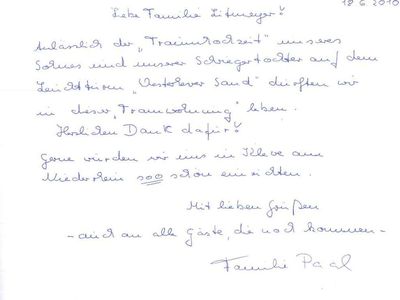 18.6.2010
Liebe Familie Litmeyer!
Anlässlich der „Traumhochzeit" unseres
Sohnes und unserer Schwiegertochter auf dem
Leuchtturm „Westerhever Sand" durften wir
in dieser „Traumwohnung" leben.
Herzlichen Dank dafür!
Gerne würden wir uns in Kleve am
Niederrhein sooo schön einrichten.
Mit lieben Grüßen
- auch an alle Gäste, die noch kommen -
Familie Paal